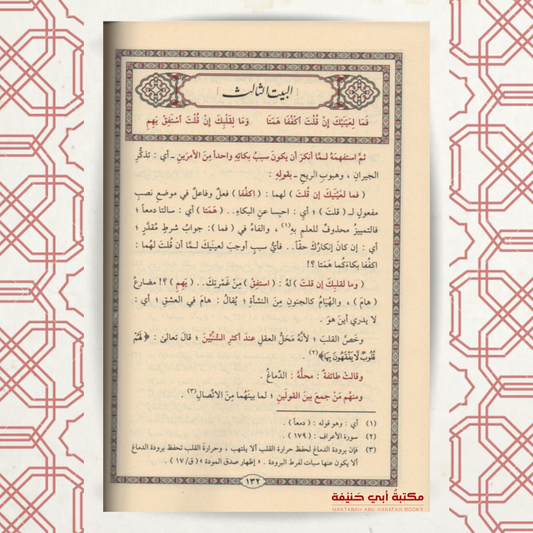 البيت الثالث
فَمَا لِعَيْنَيْكَ إِنْ قُلْتَ اكْفُفَا هَمَتَا وَمَا لِقَلْبِكَ إِنْ قُلْتَ اسْتَفِقْ يَهِمِ
ثمَّ استفهمَهُ لمَّا أنكرَ أن يكونَ سببُ بكائِهِ واحداً مِنَ الأمرَينِ ـ أي : تذكُّرِ
الجيرانِ ، وهبوبِ الريحِ ـ بقولِهِ :
( فما لعَيْنَيكَ إن قلتَ ) لهما : ( اكفُفا ) فعلٌ وفاعلٌ في موضعِ نصبِ
مفعولٍ لـ ( قلتَ ) ؛ أي : احبسا عنِ البكاءِ . . ( هَمَتا ) أي : سالتا دمعاً ؛
فالتمييزُ محذوفٌ للعلمِ بهِ(١) ، والفاءُ في ( فما ) : جوابُ شرطٍ مُقدَّرٍ ؛
أي : إن كانَ إنكارُكَ حقّاً . . فأيُّ سببٍ أوجبَ لعينَيكَ لمَّا أن قُلتَ لهُما :
اكفُفا بكاءَكُما هَمَتا ؟!
( وما لقلبِكَ إن قلتَ ) لهُ : ( استفِقْ ) مِنْ غَمْرتِكَ . . ( يَهِمِ ) ؟! مضارعُ
( هامَ ) ، والهُيَامُ كالجنونِ مِنَ النشأةِ ؛ يُقالُ : هامَ في العشقِ ؛ أي :
لا يدري أينَ هوَ .
وخَصَّ القلبَ ؛ لأنَّهُ مَحَلُّ العقلِ عندَ أكثرِ السُّنِّيِّينَ ؛ قالَ تعالىٰ : ﴿ لَهُمْ
قُلُوبٌ لَا يَفْقَهُونَ بِهَا ﴾(٢) .
وقالتْ طائفةٌ : محلُّهُ : الدِّماغُ .
ومنهُم مَنْ جمعَ بينَ القولَينِ ؛ لما بينَهُما مِنَ الاتِّصالِ(٣) .
(١) أي : وهو قوله : ( دمعاً ) .
(٢) سورة الأعراف : ( ١٧٩ ) .
(٣) فإن برودة الدماغ تحفظ حرارة القلب ألا يلتهب ، وحرارة القلب تحفظ برودة الدماغ
ألا يكون عنها سبات لفرط البرودة . « إظهار صدق المودة » ( ق/ ١٧ ) .
١٣٢
مكتبة أبي حنيفة
MAKTABAH ABU HANIFAH BOOKS